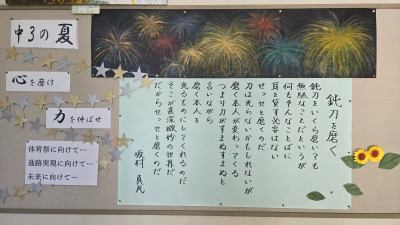 中３の夏
心を磨け
力を伸ばせ
体育祭に向けて…
進路実現に向けて…
未来に向けて…
鈍刀を磨く
鈍刀をいくら磨いても
無駄なことだというが
何もそんなことばに
耳を貸す必要はない
せっせと磨くのだ
刀は光らないかもしれないが
磨く本人が変わってくる
つまり刀がすまぬすまぬと
言いながら
磨く本人を
光るものにしてくれるのだ
そこが甚深微妙の世界だ
だからせっせと磨くのだ
坂村 真民